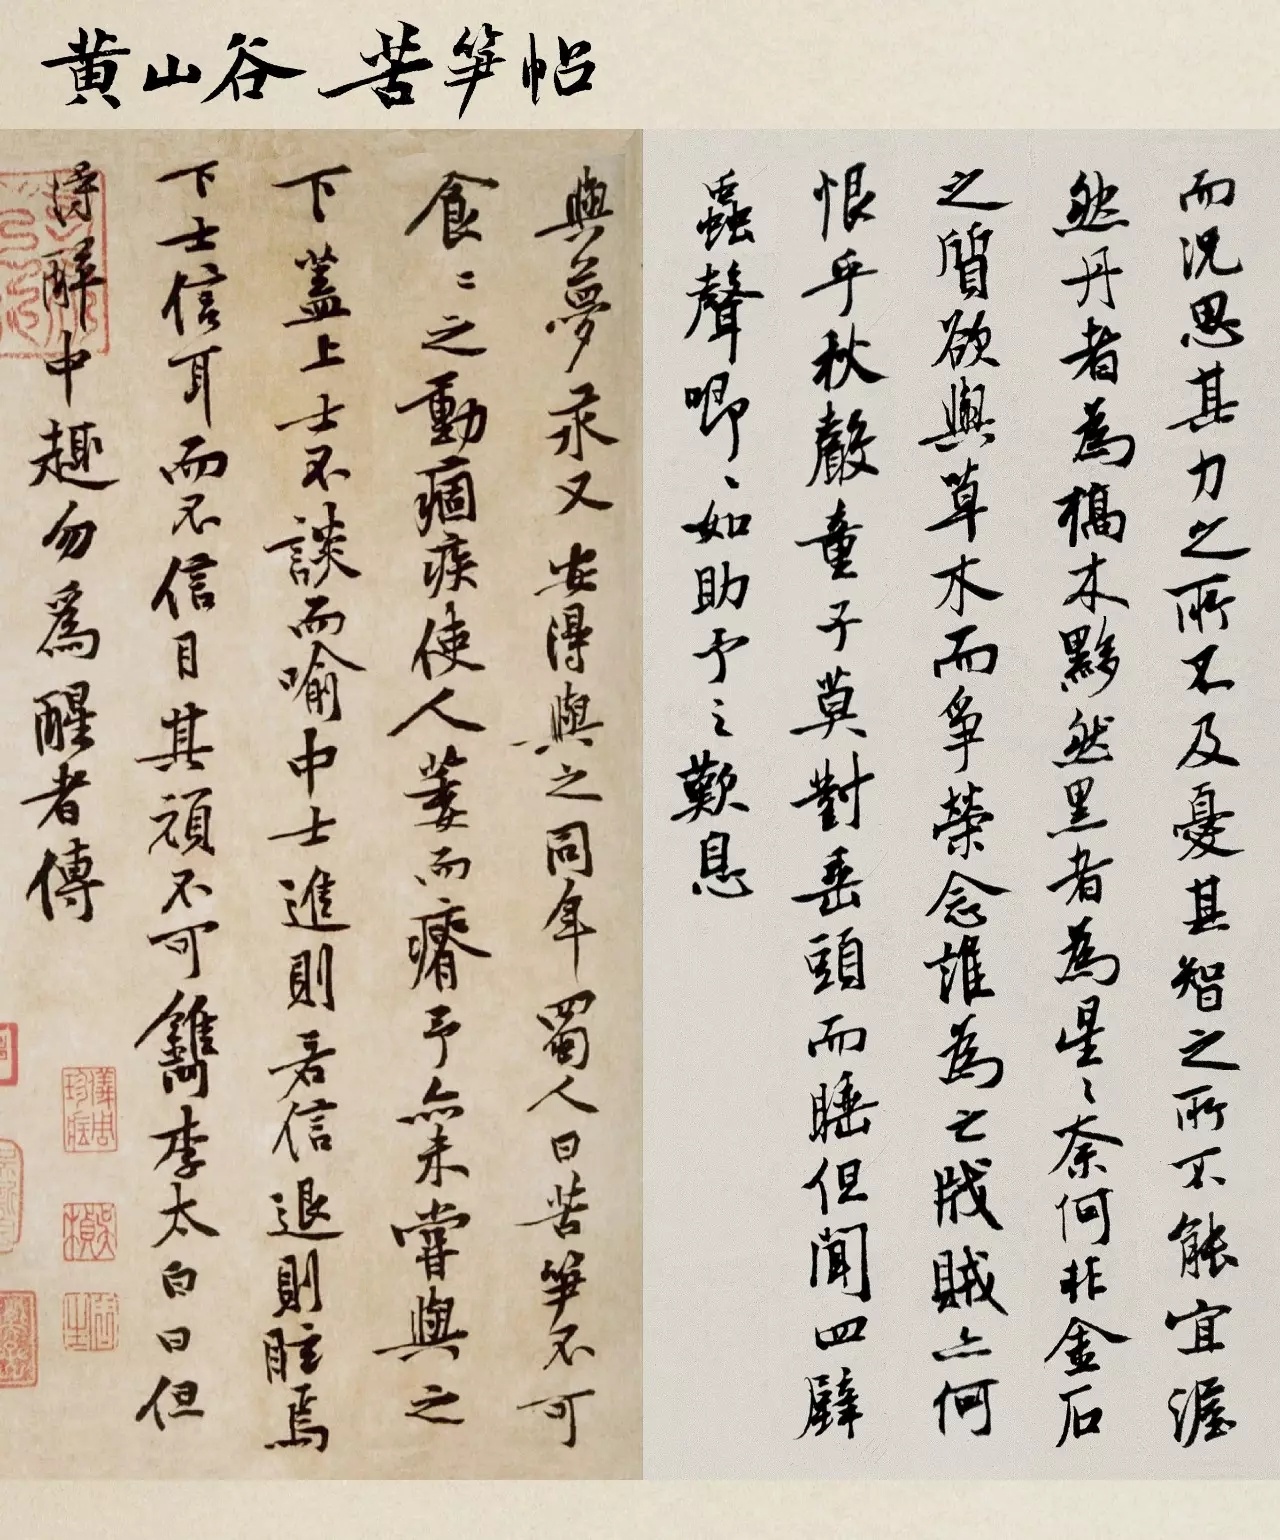 黄山谷 苦笋帖
而況思其力之所不及憂其智之所不能宜渥
然丹者為槁木黟然黑者為星〻奈何非金石
之質欲與草木而爭榮念誰為之戕賊亦何
恨乎秋聲童子莫對垂頭而睡但聞四壁
蟲聲唧〻如助予之歎息
與夢汞又安得與之同年蜀人曰苦笋不可
食〻之動痼疾使人萎而瘠予亦未嘗與之
下蓋上士不談而喻中士進則若信退則眩焉
下士信耳而不信目其頑不可鐫李太白曰但
得醉中趣勿為醒者傳